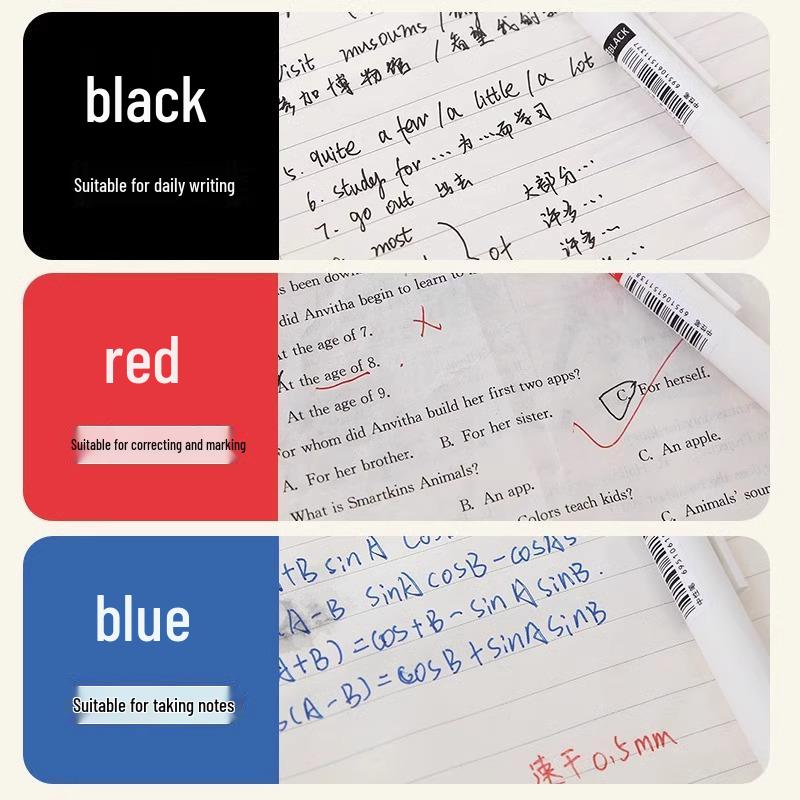 black
Suitable for daily writing
visit museums /
参加博物馆 / 希望
5. quite a few / a little / a lot
6. study for … 为…而学习
7. go out 出去
大部分…
most
许多…
of
许多…
BLACK
6951061511377
中性笔
red
Suitable for correcting and marking
been down
did Anvitha begin to learn to
At the age of 7.
At the age of 8.
At the age of 9.
For whom did Anvitha build her first two apps?
A. For her brother.
B. For her sister.
C. For herself.
What is Smartkins Animals?
B. An app.
C. An apple.
Colors teach kids?
C. Animals' soun
中性笔
blue
Suitable for taking notes
+B sinA
A-B sinA cosB - cosAs
A+B) = cos+B - sin A sinB.
s(A-B) = cosB + sinA sinB
速干 0.5mm
中性笔